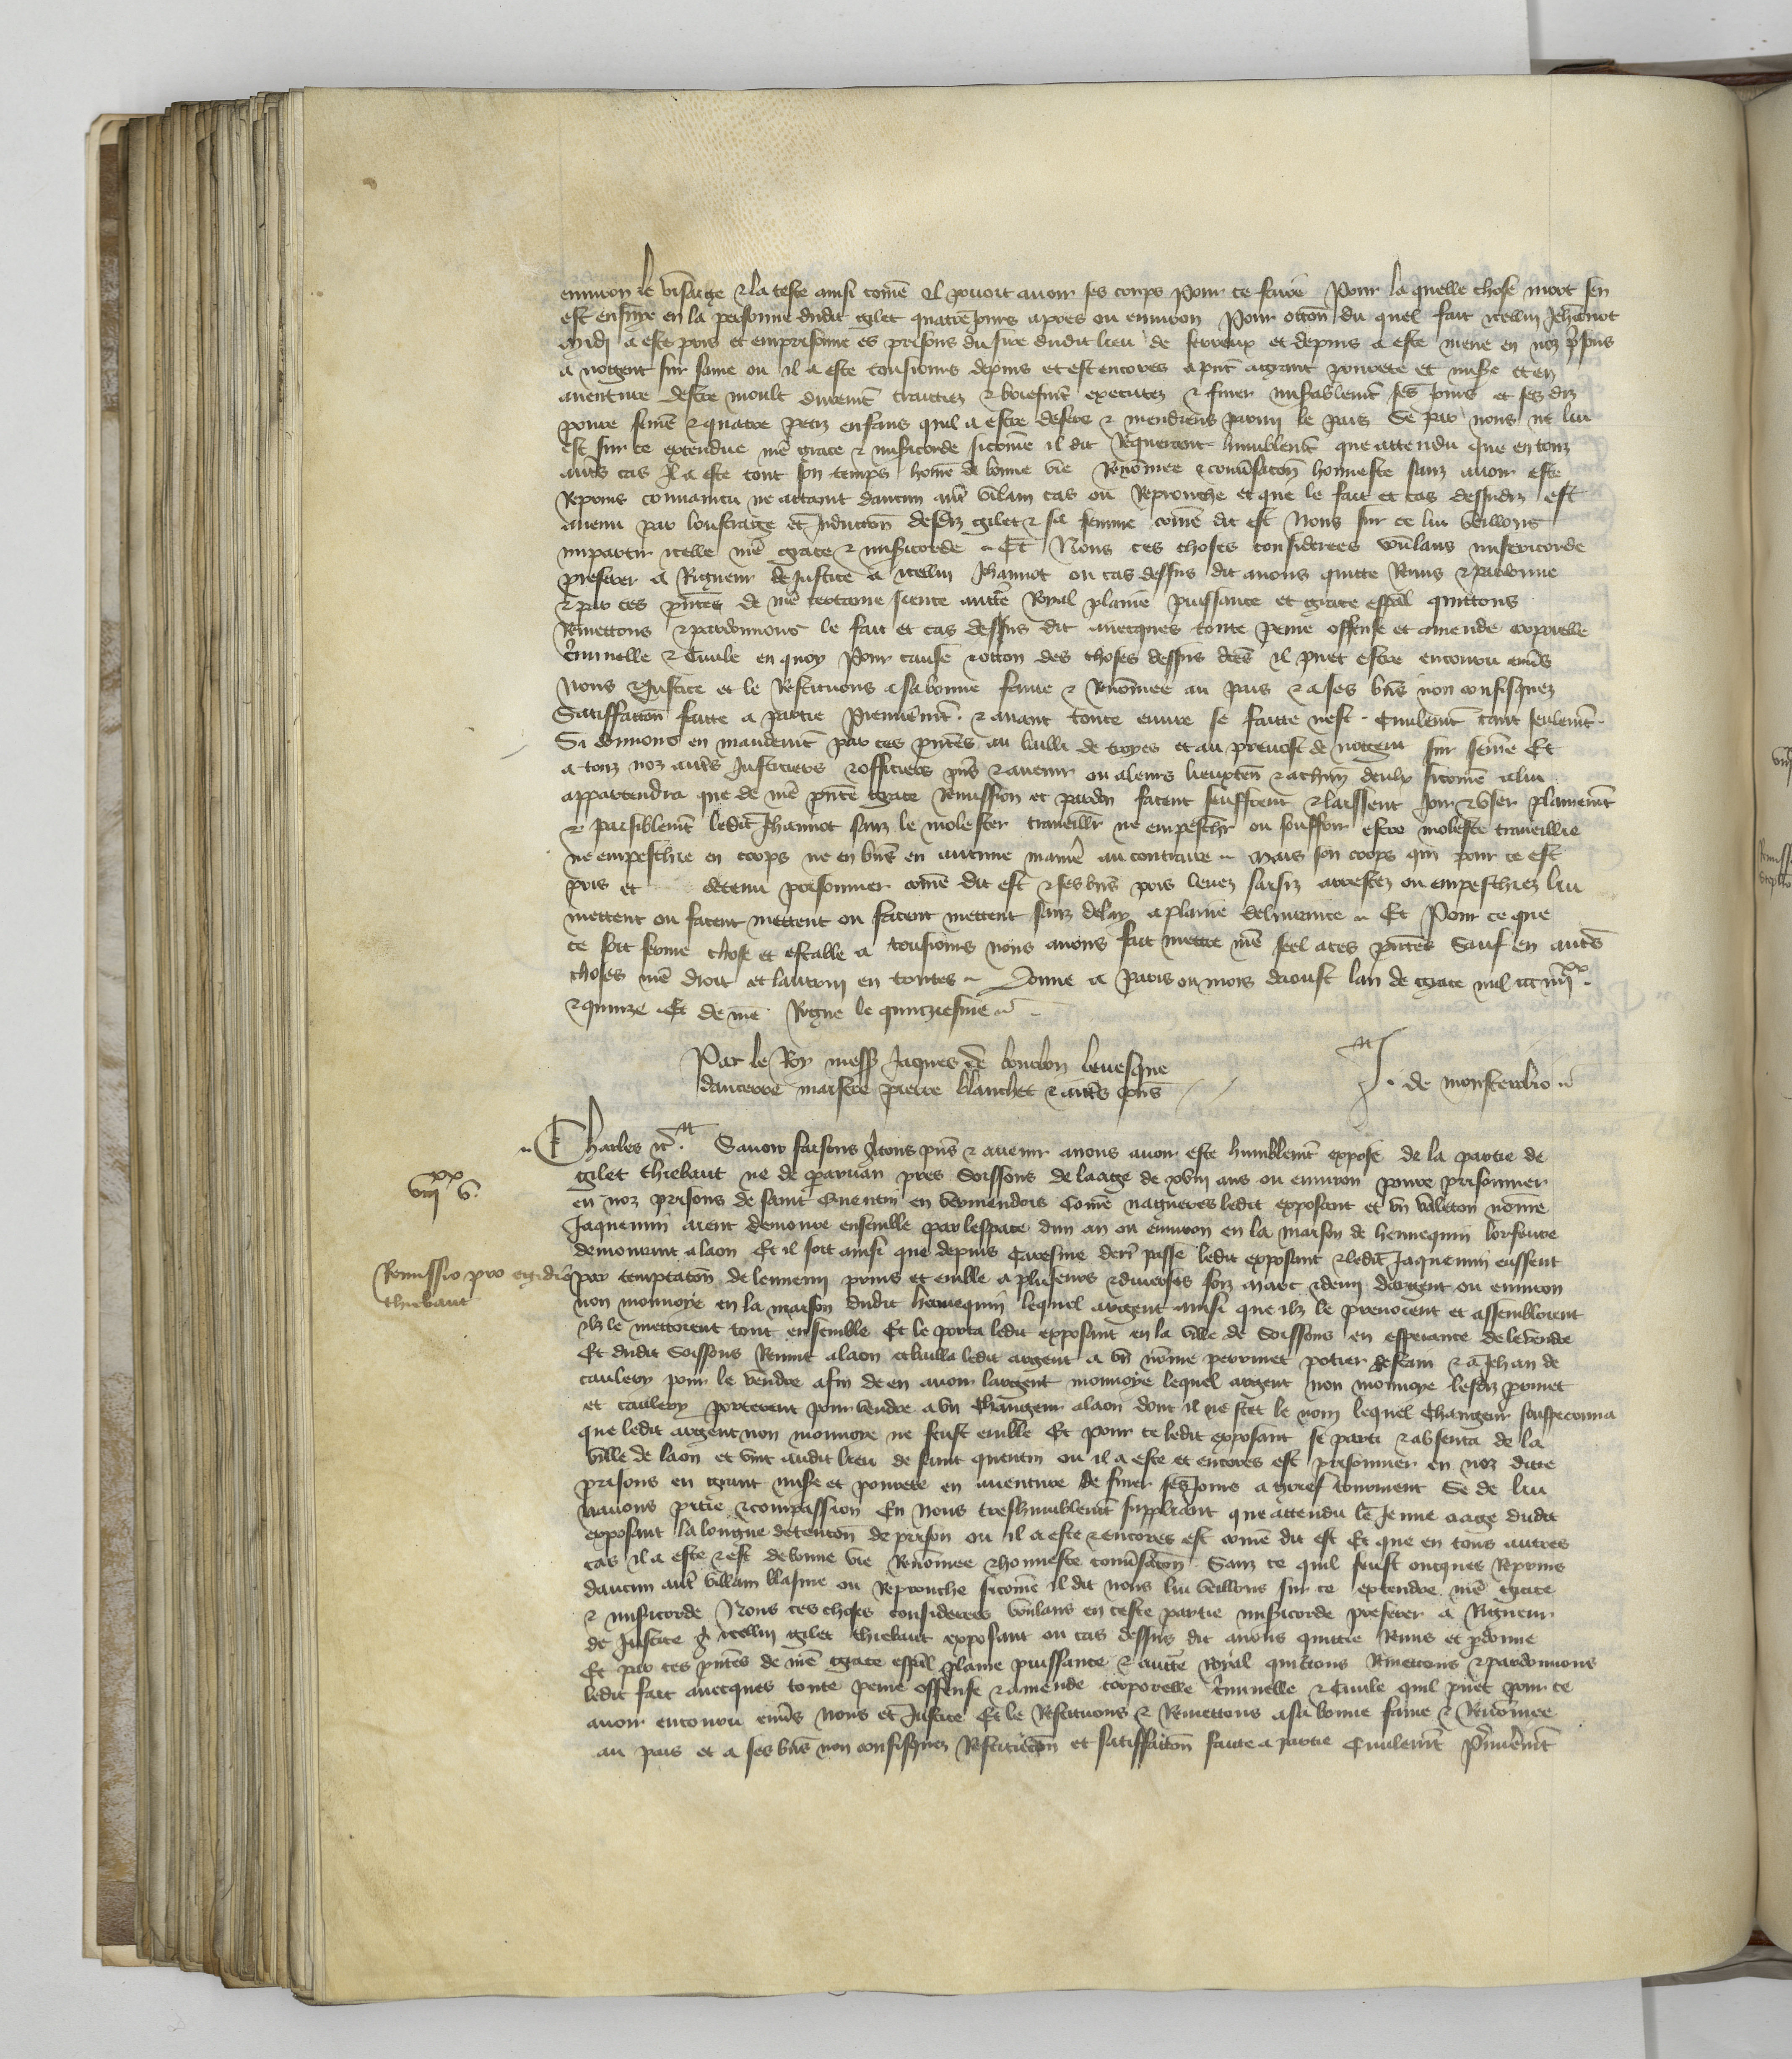 environ le visaige & la teste ainsi come il pouoit auoir ses coups Pour ce faire Pour la quelle chose mort sen
est ensuye en la personne dudit gilet quatre jours apres ou environ Pour occon du quel fait icellui Jehannot
a este pris et emprisonne es prisons du sire dudit lieu de et depuis a este mene en noz prisons
a nogent sur saine ou il a este tousiours depuis et est encores a pnt a grant pourete et misere et en
auenture destre moult durement traittiez & briefment executez & finer miserablement ses jours et sesdiz
poure feme & quatre petiz enfans quil a estre desers & mendiens parmi le pais Se par nous ne lui
est sur ce extendue nre grace & misericorde sicome il dit Requerant humblement que attendu que en touz
autres cas Il a este tout son temps home de bonne vie Renomee & conversacon honneste sanz auoir este
Repris convaincu ne attaint daucun autre vilain cas ou Reprouche et que le fait et cas dessusdiz est
auenu par loultraige et Induccon desdiz gilet & sa femme come dit est Nous sur ce lui veillons
impartir icelle nre grace & misericorde Et Nous ces choses considerees voulans misericorde
preferer a Rigueur de Justice a icellui Jehannot ou cas dessus dit auons quitte Remis & pardonne
& par ces pntes de nre certaine science auctorite Royal plaine puissance et grace espal quittons
Remettons & pardonnons le fait et cas dessus dit auecques toute peine offense et amende corporelle
criminelle & Ciuile en quoy Pour cause & occon des choses dessus dctes il puet estre encouru enuers
Nous & Justice et le Restituons a sa bonne fame & Renomee au pais & a ses biens non confisquez
Satisffaccon faitte a partie Premierement & auant toute euure se faitte nest Ciuilement tant seulement
Si donnons en mandement par ces pntes au bailli de troyes et au preuost de nogent sur seine Et
a touz noz autres Justiciers & officiers pns & auenir ou a leurs lieuxten & a chun deulx sicome a lui
appartendra que de nre pnte grace Remission et pardon facent seuffrent & laissent joir & user plainement
& paisiblement ledit Jehannot sanz le molester trauaillier ne empeschier ou souffrir estre moleste trauaillie
ne empeschie en corps ne en biens en aucune maniere au contraire Mais son corps qui pour ce est
pris et detenu prisonnier come dit est & ses biens pris leuez saisiz arrestez ou empeschiez lui
mettent ou facent mettent ou facent mettent sanz delay a plaine deliurance Et Pour ce que
ce soit ferme chose et estable a tousiours nous auons fait mettre nre seel a ces pntes Sauf en autres
choses nre droit et lautruy en toutes Donne a Paris ou mois daoust lan de grace mil ccc iiii xx
& quinze Et de nre Regne le quinziesme
Par le Roy mess Jaques de bourbon leuesque
daucerre maistre pierre blanchet & autres pns
J. de monsterolio
Charles &c. Sauoir faisons a tous pns & auenir a nous auoir este humblement expose de la partie de
gilet thiebaut ne de paruan pres Soissons de laage de xviii ans ou environ poure prisonnier
en noz prisons de saint Quentin en vermendois Come nagueres ledit exposant et vn valeton nome
Jaquemin aient demoure ensemble par lespace dun an ou environ en la maison de hennequin lorfeure
demourant a laon Et il soit ainsi que depuis Caresme derr passe ledit exposant & ledit Jaquemin eussent
viii xx v.
Remissio pro egidio
thiebaut
par temptacon de lennemi prins et emble a plusieurs & diuerses foiz marc & demi dargent ou environ
non monnoye en la maison dudit hennequin lequel argent ainsi que ilz le prenoient et assembloient
ilz le mettoient tout ensemble Et le porta ledit exposant en la ville de Soissons en esperance de le vendre
Et dudit Soissons Reuint a laon et bailla ledit argent a vn nome perrinet potier destain & a Jehan de
caulery pour le vendre afin de en auoir largent monnoye lequel argent non monnoye lesdiz perrinet
et cauleroy porterent pour vendre a vn Changeur a laon dont il ne scet le nom lequel Changeur souspeconna
que ledit argent non monnoie ne feust emble Et pour ce ledit exposant se parti & absenta de la
ville de laon et vint audit lieu de saint quentin ou il a este et encores est prisonnier en noz dictes
prisons en grant misere et pourete en auenture de finer ses jours a grief tourment Se de lui
nauons pitie & compassion En Nous treshumblement suppliant que attendu le Jeune aage dudit
exposant la longue detencon de prison ou il a este & encores est come dit est Et que en tous autres
cas il a este & est de bonne vie Renomee & honneste conversacon Sanz ce quil feust oncques Reprins
daucun autre villain blasme ou Reprouche sicome il dit nous lui veillons sur ce extendre nre grace
& misericorde Nous ces choses considerees voulans en ceste partie misericorde preferer a Rigueur
de Justice a icellui gilet thiebaut exposant ou cas dessus dit auons quittie Remis et pdonne
Et par ces pntes de nre grace espal plaine puissance & auctorite Royal quittons Remettons & pardonnons
ledit fait auecques toute peine offense & amende corporelle criminelle & Ciuile quil puet pour ce
auoir encouru enuers Nous et Justice Et le Restituons & Remettons a sa bonne fame & Renomee
au pais et a ses biens non confisquez Restitucion et satisffaccon faitte a partie Ciuilement Premierement